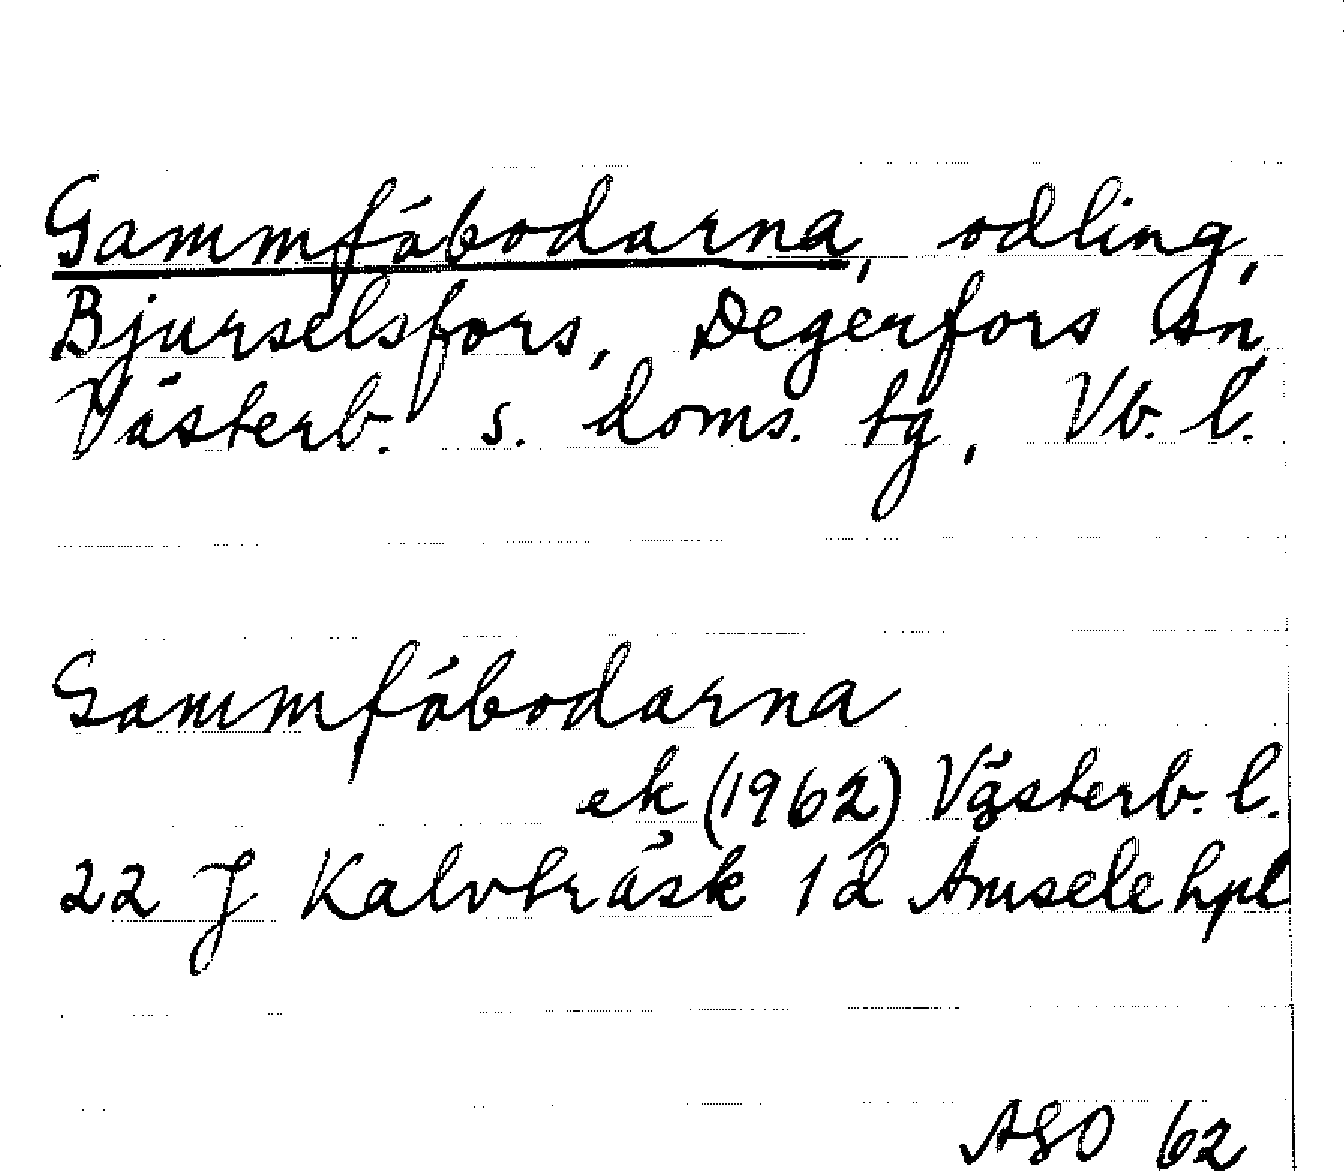 Gammfäbodarna, odling,
Bjurselsfors, Degerfors sn
Västerb. s. doms. tg, Vb. l.
Gammfäbodarna
ek (1962) Västerb. l.
22 J Kalvträsk 1d Amsele hpl
62